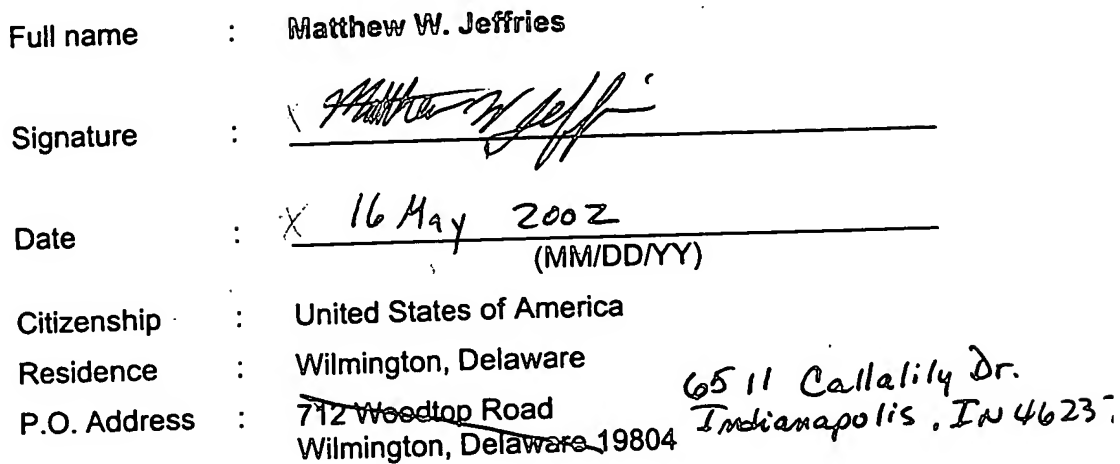 Full name : Matthew W. Jeffries
Signature : X Matthew W Jeffri
Date : X 16 May 2002
(MM/DD/YY)
Citizenship : United States of America
Residence : Wilmington, Delaware
P.O. Address : 712 Woodtop Road
Wilmington, Delaware 19804
6511 Callalily Dr.
Indianapolis, IN 46237